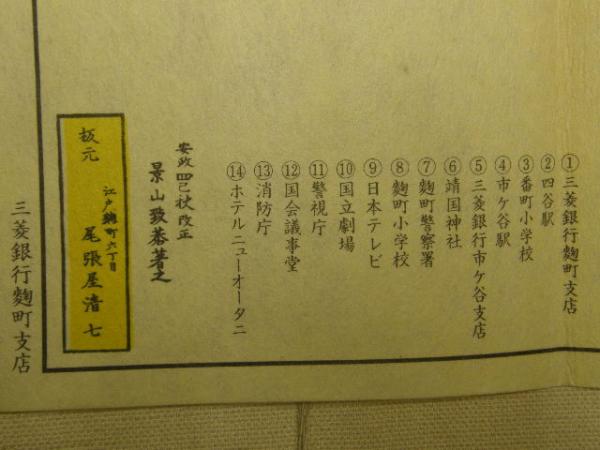 ①三菱銀行麴町支店
②四谷駅
③番町小学校
④市ケ谷駅
⑤三菱銀行市ケ谷支店
⑥靖国神社
⑦麴町警察署
⑧麴町小学校
⑨日本テレビ
⑩国立劇場
⑪警視庁
⑫国会議事堂
⑬消防庁
⑭ホテルニューオータニ
安政四巳秋改正
景山致恭著之
板元
江戸麴町六丁目
尾張屋清七
三菱銀行麴町支店